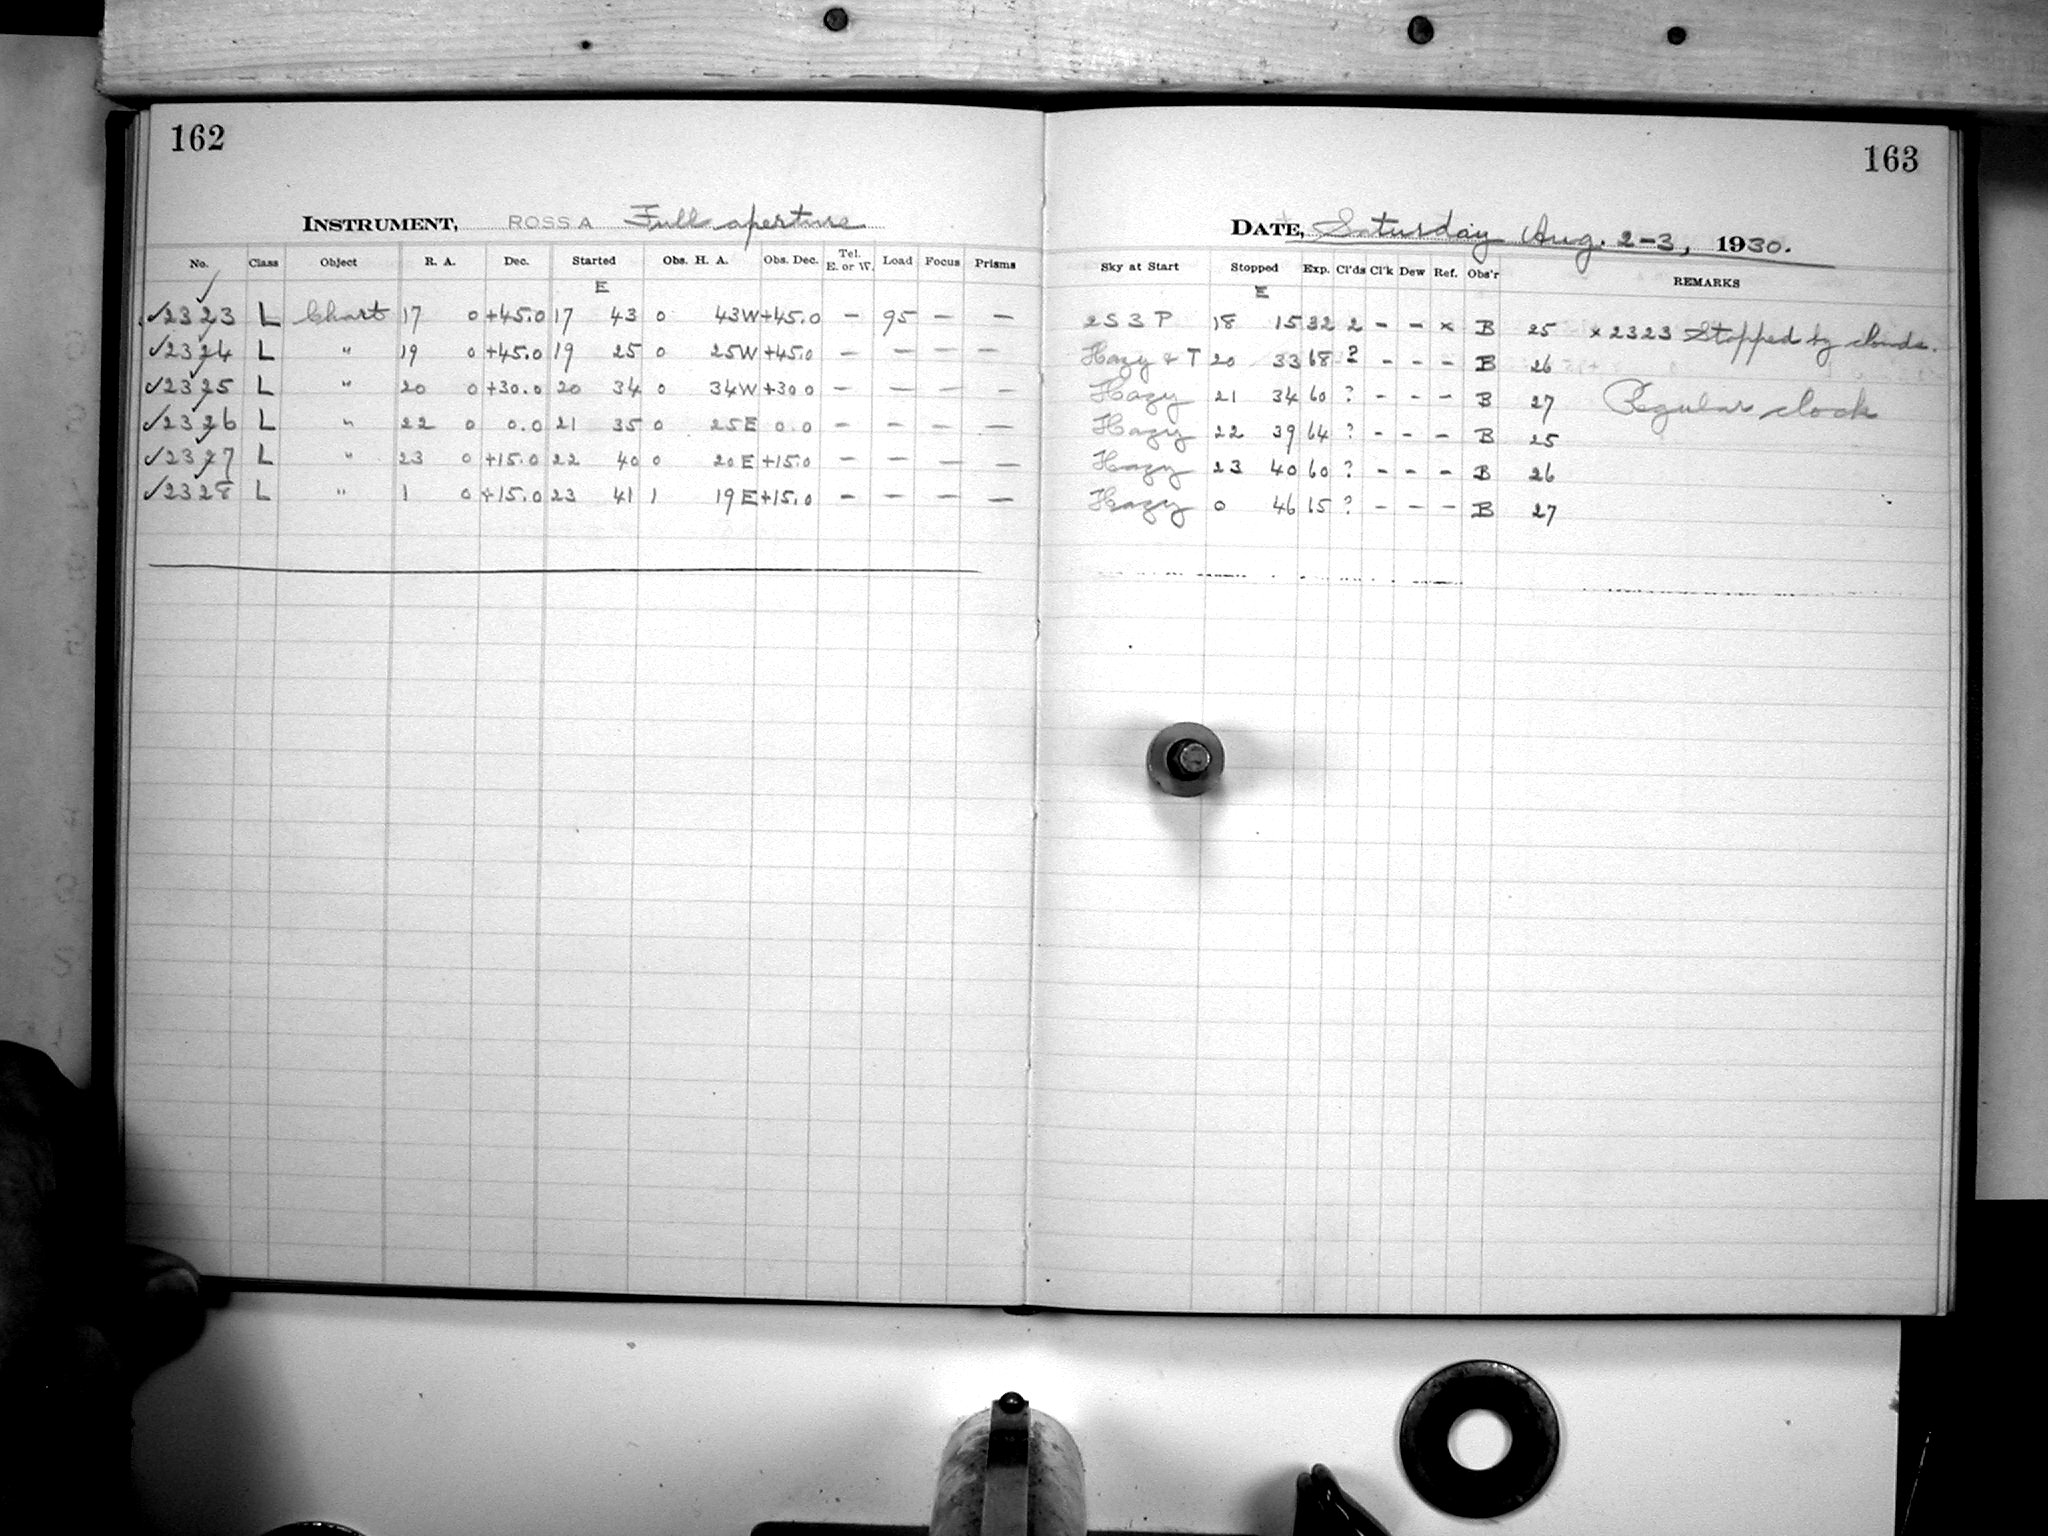 162
INSTRUMENT, ROSS A Full aperture
No. Class Object R. A. Dec. Started Obs. H. A. Obs. Dec. Tel. E. or W. Load Focus Prisms
E
✓2323 L Chart 17 0 +45.0 17 43 0 43W +45.0 – 95 – –
✓2324 L " 19 0 +45.0 19 25 0 25W +45.0 – – – –
✓2325 L " 20 0 +30.0 20 34 0 34W +30.0 – – – –
✓2326 L " 22 0 0.0 21 35 0 25E 0.0 – – – –
✓2327 L " 23 0 +15.0 22 40 0 20E +15.0 – – – –
✓2328 L " 1 0 +15.0 23 41 1 19E +15.0 – – – –
163
DATE, Saturday Aug. 2-3, 1930.
Sky at Start Stopped Exp. Cl'ds Cl'k Dew Ref. Obs'r REMARKS
E
2S 3 P 18 15 32 2 – – x B 25 x 2323 Stopped by clouds.
Hazy & T 20 33 68 ? – – – B 26
Hazy 21 34 60 ? – – – B 27 Regular clock
Hazy 22 39 64 ? – – – B 25
Hazy 23 40 60 ? – – – B 26
Hazy 0 46 65 ? – – – B 27